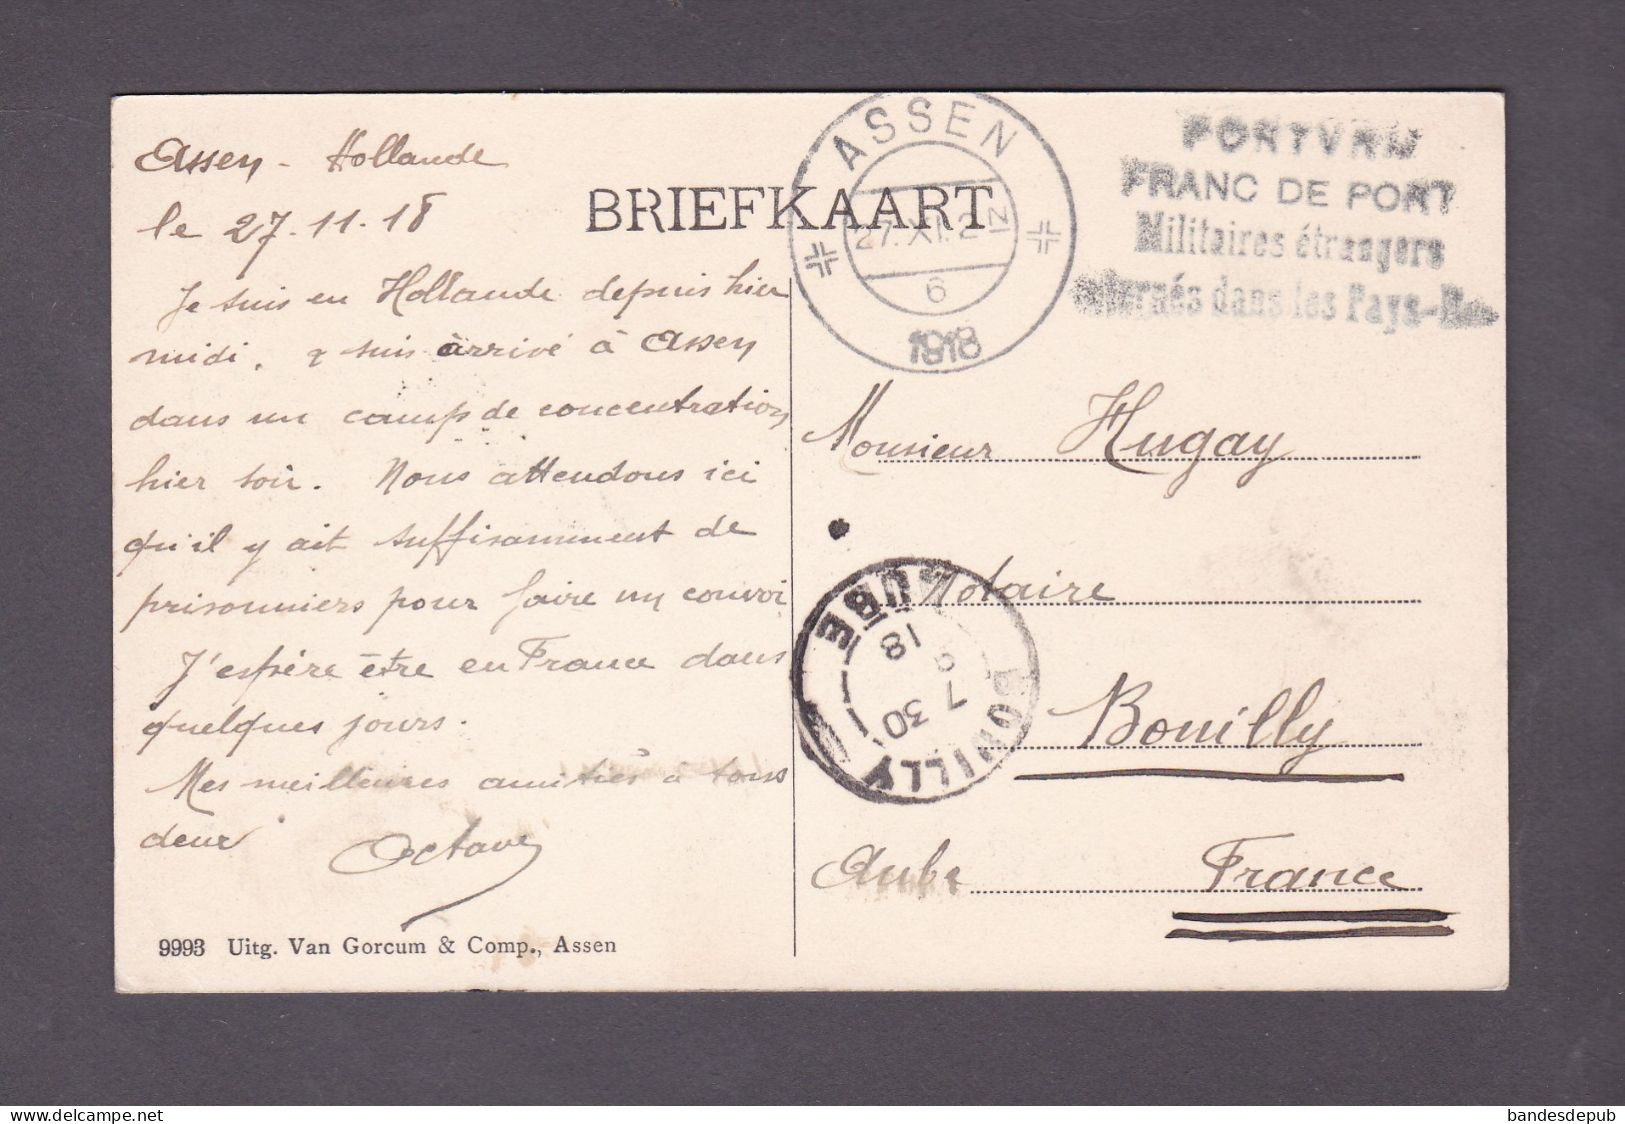 Assen - Hollande
le 27.11.18
Je suis en Hollande depuis hier
midi. & suis arrivé à Assen
dans un camp de concentration
hier soir. Nous attendons ici
qu'il y ait suffisamment de
prisonniers pour faire un convoi
J'espère être en France dans
quelques jours.
Mes meilleures amitiés à tous
deux
Octave
9993 Uitg. Van Gorcum & Comp., Assen
BRIEFKAART
ASSEN
27.XI. 2 N
6
1918
PORTVRIJ
FRANC DE PORT
Militaires étrangers
internés dans les Pays-Bas
Monsieur Hugay
Notaire
Bouilly
Aube France
BOUILLY
AUBE
7 30
18
delcampe.net
bandesdepub